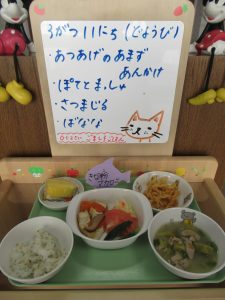 3がつ11にち(どようび)
・あつあげのあまず
あんかけ
・ぽてとま・しゃ
・さつまじる
・ばなな
きな粉
マカロニ